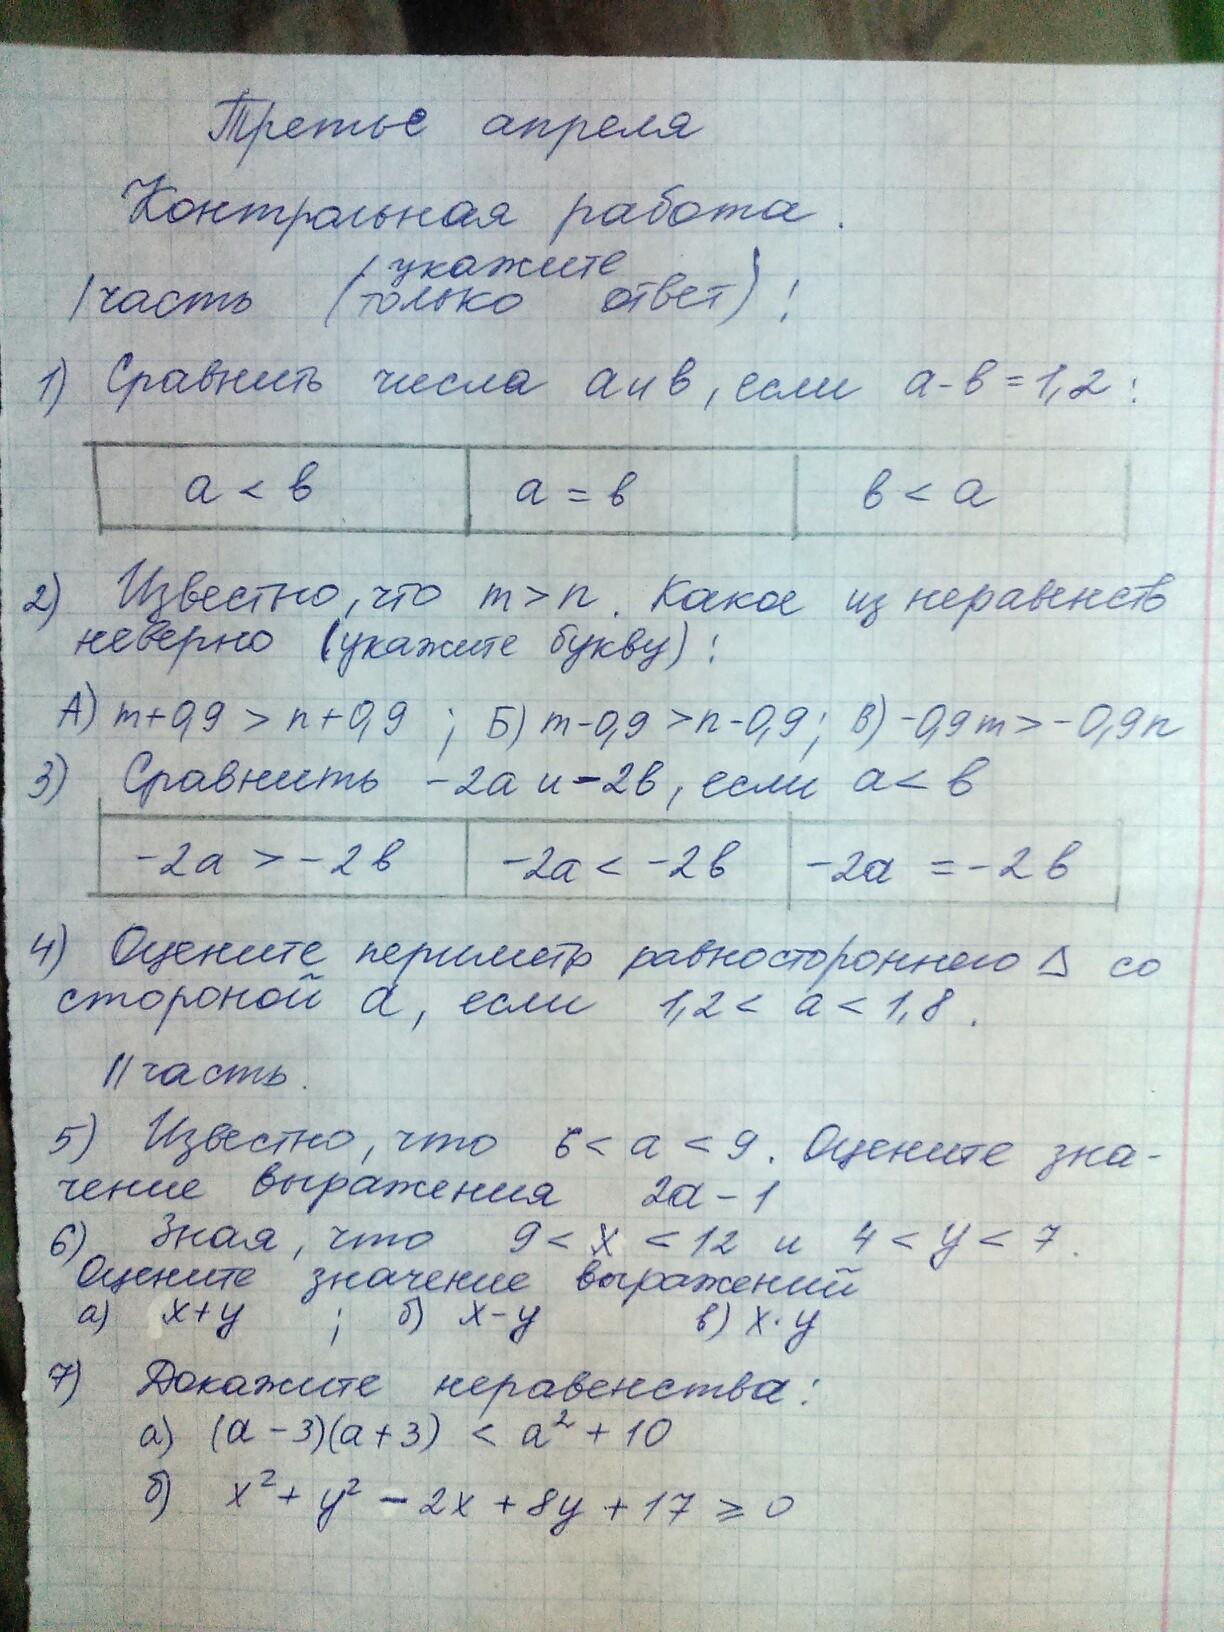 Третье апреля
Контрольная работа.
I часть (укажите
только ответ):
1) Сравнить числа а и в, если а-в=1,2:
а < в а = в в < а
2) Известно, что m>n. Какое из неравенств
неверно (укажите букву):
А) m+0,9 > n+0,9 ; Б) m-0,9 >n-0,9; В) -0,9m>-0,9n
3) Сравнить -2а и -2в, если а< в
-2а > -2в -2а < -2в -2а = -2в
4) Оцените периметр равностороннего Δ со
стороной а, если 1,2 < а < 1,8.
II часть.
5) Известно, что 6 < а < 9. Оцените зна-
чение выражения 2а-1
6) Зная, что 9 < x < 12 и 4 < y < 7.
Оцените значение выражений
а) x+y ; б) x-y в) x·y
7) Докажите неравенства:
а) (а-3)(а+3) < а²+10
б) x²+ y² - 2x + 8y + 17 ≥ 0